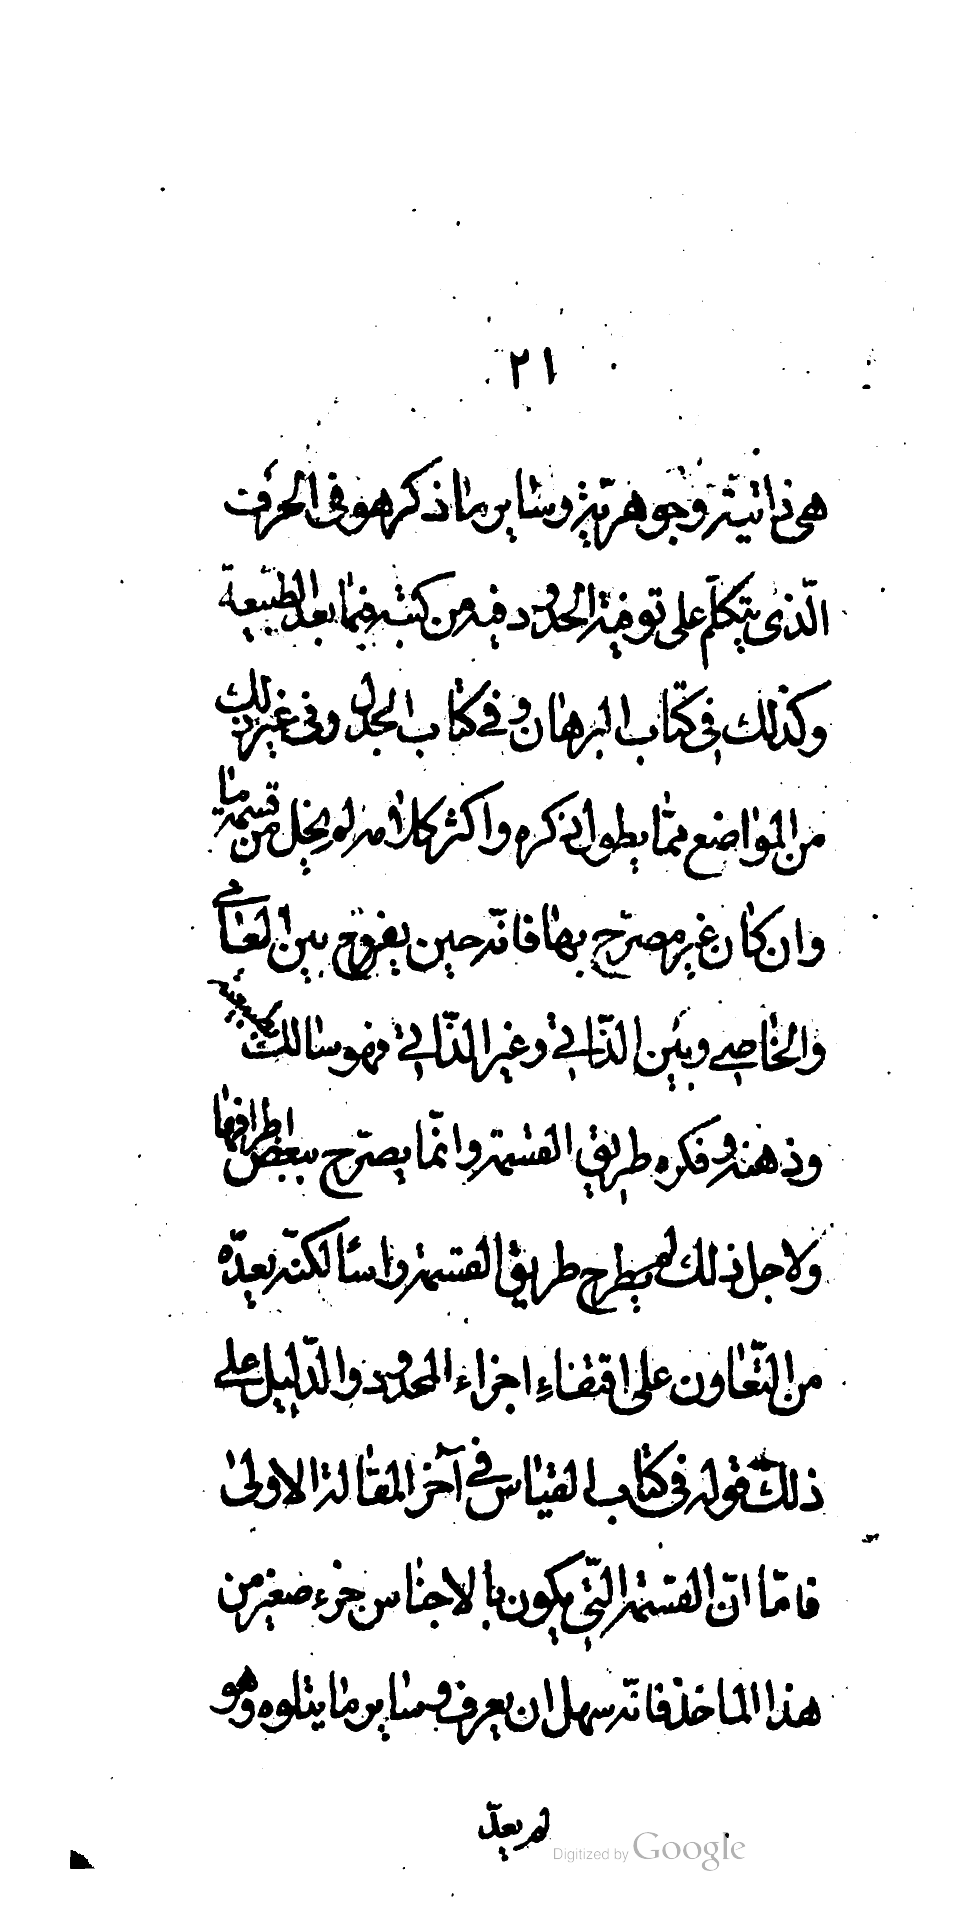 ٢١
هی ذاتیة وجوهریة وسایر ما ذکر هو فی الحرف
الّذی یتکلّم علی توفیة الحدود فیه من کتبه فیما بعد الطبیعة
وکذلك فی کتاب البرهان وفی کتاب الجدل وفی غیر ذلك
من المواضع ممّا یطول ذکره واکثر کلامه لم یخل من قسمة ما
وان کان غیر مصرّح بها فانّه حین یفرق بین العامی
والخاصی وبین الذّاتی وغیر الذّاتی فهو سالك
وذهنه وفکره طریق القسمة وانّما یصرّح ببعض اطرافها
ولاجل ذلك لم یطرح طریق القسمة راسًا لکنّه یعدّه
من التّعاون علی اقتضاء اجزاء المحدود والدّلیل علی
ذلك قوله فی کتاب القیاس فی آخر المقالة الاولی
فامّا انّ القسمة الّتی یکون بالاجناس جزء صغیر من
هذا الماخذ فانّه سهل ان یعرف وسایر ما یتلوه وهو
لم یعدّ
Digitized by Google